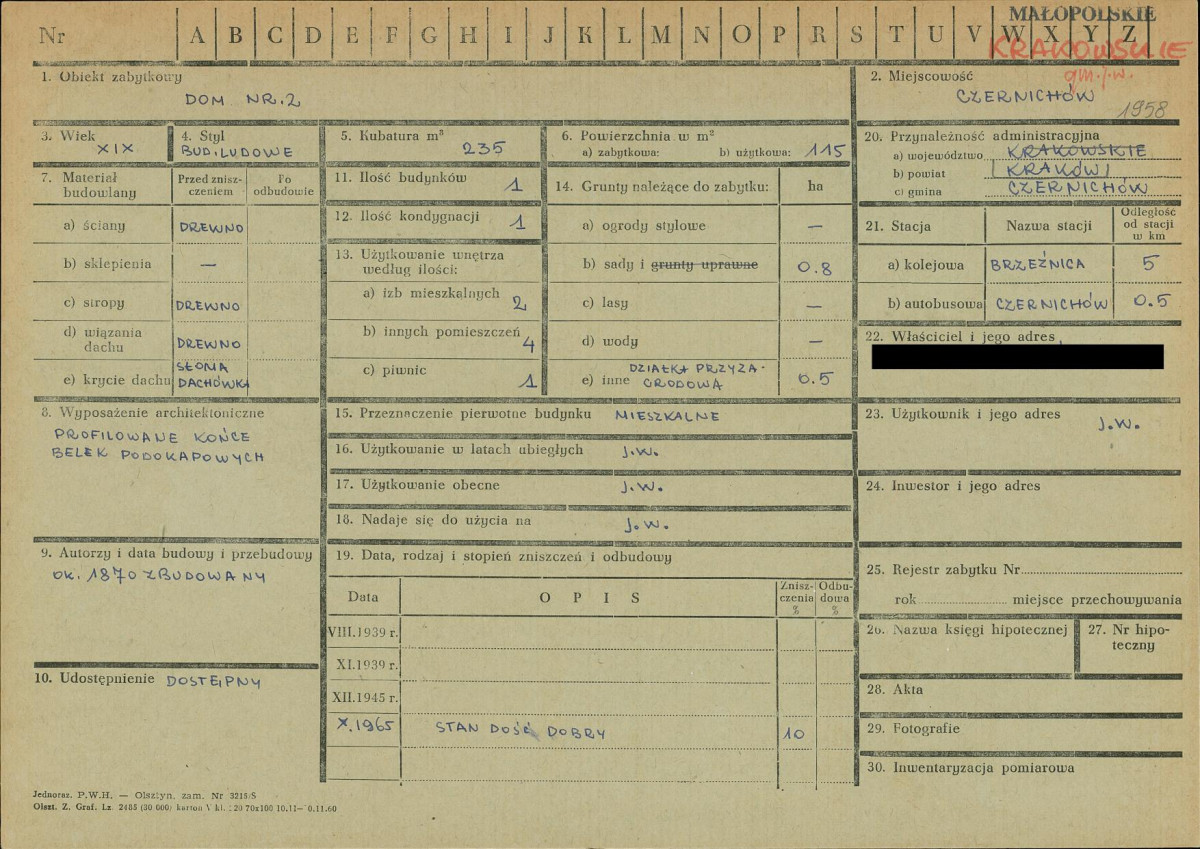 Nr A B C D E F G H I J K L M N O P R S T U V W X Y Z
MAŁOPOLSKIE
KRAKOWSKIE
gm. j.w.
1. Obiekt zabytkowy
DOM NR. 2
2. Miejscowość
CZERNICHÓW
1958
3. Wiek
XIX
4. Styl
BUD. LUDOWE
5. Kubatura m³
235
6. Powierzchnia w m²
a) zabytkowa: b) użytkowa: 115
20. Przynależność administracyjna
a) województwo KRAKOWSKIE
b) powiat KRAKÓW
c) gmina CZERNICHÓW
7. Materiał budowlany
Przed znisz-
czeniem
Po
odbudowie
a) ściany DREWNO
b) sklepienia —
c) stropy DREWNO
d) wiązania
dachu DREWNO
SŁOMA
e) krycie dachu DACHÓWKA
11. Ilość budynków 1
12. Ilość kondygnacji 1
13. Użytkowanie wnętrza
według ilości:
a) izb mieszkalnych 2
b) innych pomieszczeń 4
c) piwnic 1
14. Grunty należące do zabytku: ha
a) ogrody stylowe —
b) sady i grunty uprawne 0.8
c) lasy —
d) wody —
e) inne DZIAŁKA PRZYZA-
GRODOWA 0.5
21. Stacja Nazwa stacji
Odległość
od stacji
w km
a) kolejowa BRZEŹNICA 5
b) autobusowa CZERNICHÓW 0.5
22. Właściciel i jego adres
8. Wyposażenie architektoniczne
PROFILOWANE KOŃCE
BELEK PODOKAPOWYCH
15. Przeznaczenie pierwotne budynku MIESZKALNE
16. Użytkowanie w latach ubiegłych J.W.
17. Użytkowanie obecne J.W.
18. Nadaje się do użycia na J.W.
23. Użytkownik i jego adres
J.W.
24. Inwestor i jego adres
9. Autorzy i data budowy i przebudowy
OK. 1870 ZBUDOWANY
19. Data, rodzaj i stopień zniszczeń i odbudowy
Data OPIS
Znisz-
czenia
%
Odbu-
dowa
%
VIII.1939 r.
XI.1939 r.
XII.1945 r.
X.1965 STAN DOŚĆ DOBRY 10
10. Udostępnienie DOSTĘPNY
25. Rejestr zabytku Nr
rok miejsce przechowywania
26. Nazwa księgi hipotecznej
27. Nr hipo-
teczny
28. Akta
29. Fotografie
30. Inwentaryzacja pomiarowa
Jednoraz. P.W.H. — Olsztyn, zam. Nr 3218/S
Olszt. Z. Graf. Lz. 2485 (30 000) karton V kl. 120 70x100 10.11—10.11.60